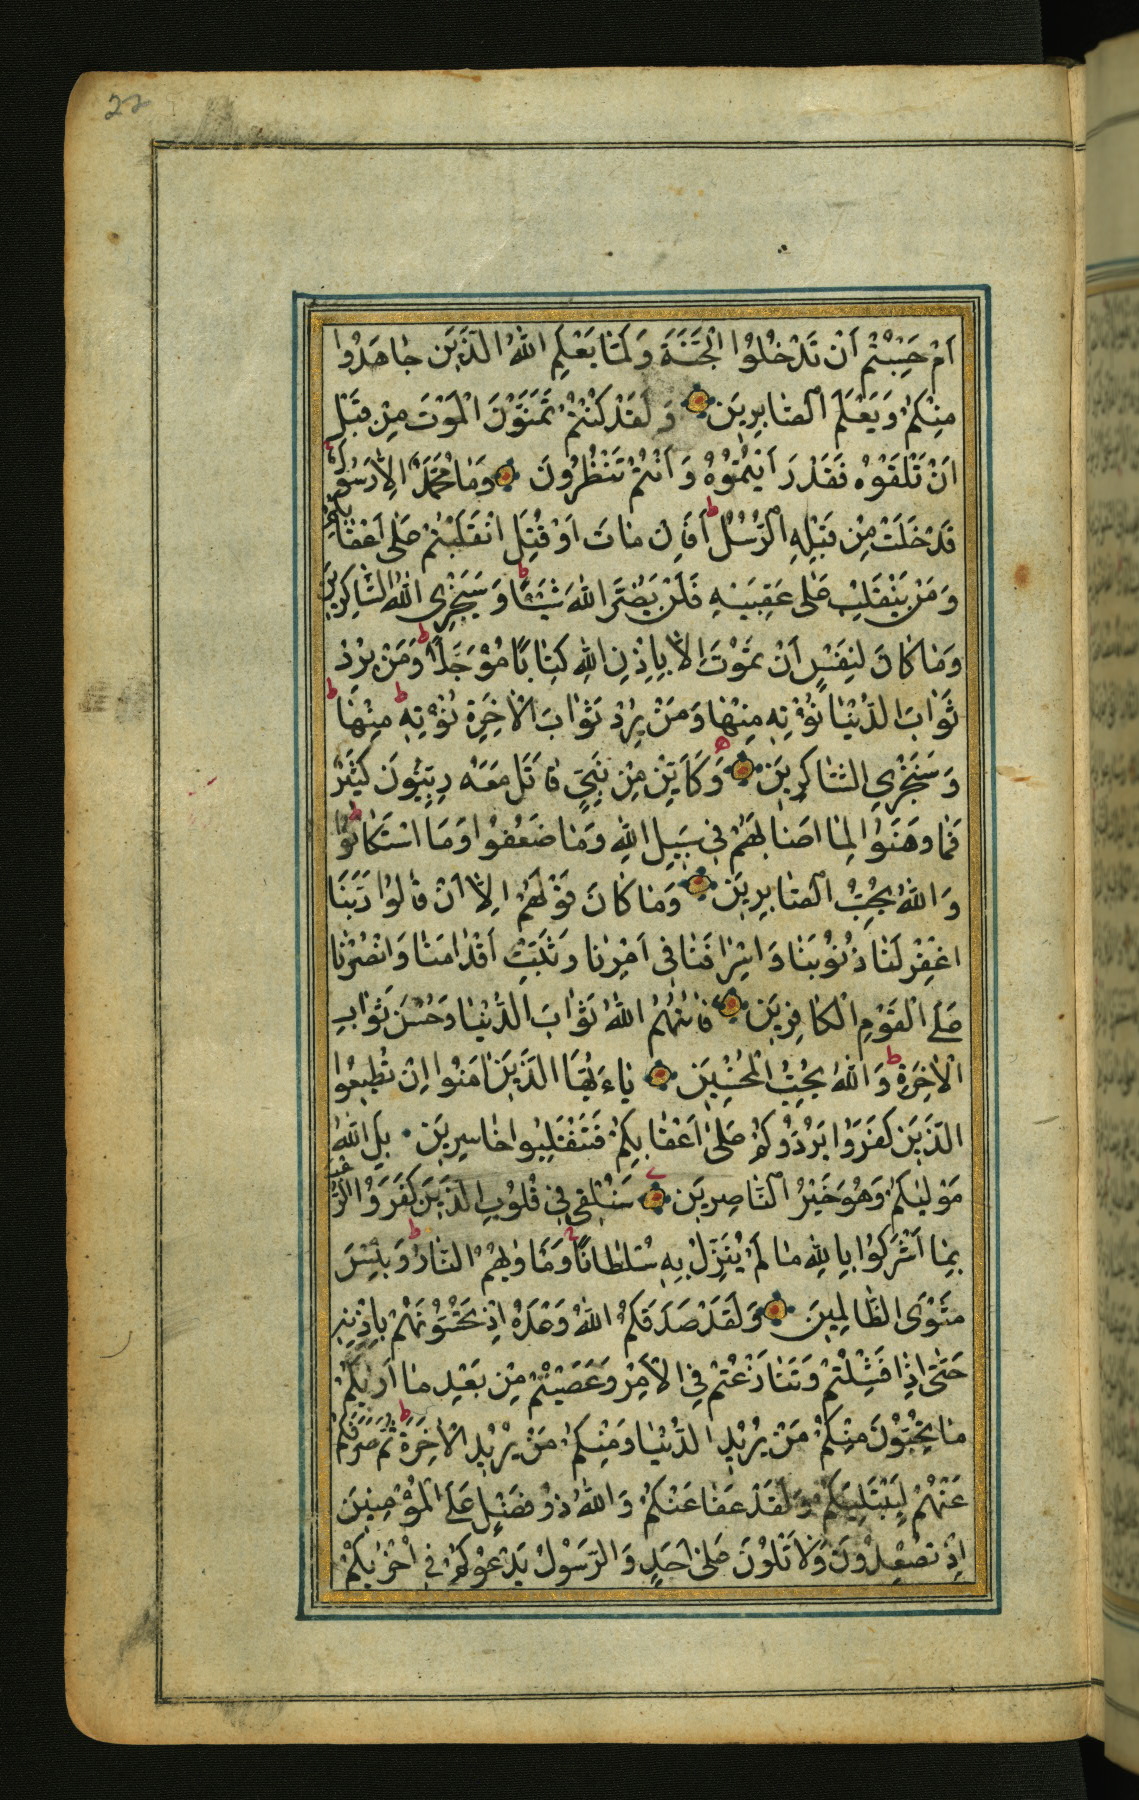 22
اَمْ حَسِبْتُمْ اَنْ تَدْخُلُوا الْجَنَّةَ وَلَمَّا يَعْلَمِ اللّٰهُ الَّذٖينَ جٰاهَدُوا
مِنْكُمْ وَيَعْلَمَ الصّٰابِرٖينَ وَلَقَدْ كُنْتُمْ تَمَنَّوْنَ الْمَوْتَ مِنْ قَبْلِ
اَنْ تَلْقَوْهُ فَقَدْ رَاَيْتُمُوْهُ وَاَنْتُمْ تَنْظُرُونَ وَمٰا مُحَمَّدٌ اِلّٰا رَسُولٌ
قَدْ خَلَتْ مِنْ قَبْلِهِ الرُّسُلُ ط اَفَاِنْ مٰاتَ اَوْ قُتِلَ انْقَلَبْتُمْ عَلٰى اَعْقٰابِكُمْ
وَمَنْ يَنْقَلِبْ عَلٰى عَقِبَيْهِ فَلَنْ يَضُرَّ اللّٰهَ شَيْئًا ط وَسَيَجْزِى اللّٰهُ الشّٰاكِرٖينَ
وَمٰا كٰانَ لِنَفْسٍ اَنْ تَمُوْتَ اِلّٰا بِاِذْنِ اللّٰهِ كِتٰابًا مُؤَجَّلًا ط وَمَنْ يُرِدْ
ثَوٰابَ الدُّنْيٰا نُؤْتِهٖ مِنْهٰا وَمَنْ يُرِدْ ثَوٰابَ الْاٰخِرَةِ نُؤْتِهٖ ط مِنْهٰا ط
وَسَنَجْزِي الشّٰاكِرٖينَ وَكَاَيِّنْ مِنْ نَبِىٍّ قٰاتَلَ مَعَهُ رِبِّيُّونَ كَثٖيرٌ
فَمٰا وَهَنُوا لِمٰا اَصٰابَهُمْ فٖى سَبٖيلِ اللّٰهِ وَمٰا ضَعُفُوا وَمَا اسْتَكٰانُوا ط
وَاللّٰهُ يُحِبُّ الصّٰابِرٖينَ وَمٰا كٰانَ قَوْلَهُمْ اِلّٰا اَنْ قٰالُوا رَبَّنَا
اغْفِرْ لَنٰا ذُنُوْبَنٰا وَاِسْرٰافَنٰا فٖى اَمْرِنٰا وَثَبِّتْ اَقْدٰامَنٰا وَانْصُرْنٰا
عَلَى الْقَوْمِ الْكٰافِرٖينَ فَاٰتٰهُمُ اللّٰهُ ثَوٰابَ الدُّنْيٰا وَحُسْنَ ثَوٰابِ
الْاٰخِرَةِ ط وَاللّٰهُ يُحِبُّ الْمُحْسِنٖينَ يٰاءَيُّهَا الَّذٖينَ اٰمَنُوا اِنْ تُطٖيعُوا
الَّذٖينَ كَفَرُوا يَرُدُّوكُمْ عَلٰى اَعْقٰابِكُمْ فَتَنْقَلِبُوا خٰاسِرٖينَ بَلِ اللّٰهُ
مَوْلٰيكُمْ وَهُوَ خَيْرُ النّٰاصِرٖينَ سَنُلْقٖى فٖى قُلُوبِ الَّذٖينَ كَفَرُوا الرُّعْبَ
بِمٰا اَشْرَكُوا بِاللّٰهِ مٰا لَمْ يُنَزِّلْ بِهٖ سُلْطٰانًا وَمَأْوٰيهُمُ النّٰارُ ط وَبِئْسَ
مَثْوَى الظّٰالِمٖينَ وَلَقَدْ صَدَقَكُمُ اللّٰهُ وَعْدَهُ اِذْ تَحُسُّوْنَهُمْ بِاِذْنِهٖ
حَتّٰى اِذٰا فَشِلْتُمْ وَتَنٰازَعْتُمْ فِى الْاَمْرِ وَعَصَيْتُمْ مِنْ بَعْدِ مٰا اَرٰيكُمْ
مٰا تُحِبُّوْنَ مِنْكُمْ مَنْ يُرٖيدُ الدُّنْيٰا وَمِنْكُمْ مَنْ يُرٖيدُ الْاٰخِرَةَ ط ثُمَّ صَرَفَكُمْ
عَنْهُمْ لِيَبْتَلِيَكُمْ وَلَقَدْ عَفٰا عَنْكُمْ وَاللّٰهُ ذُوْ فَضْلٍ عَلَى الْمُؤْمِنٖينَ
اِذْ تُصْعِدُونَ وَلٰا تَلْوُنَ عَلٰى اَحَدٍ وَالرَّسُوْلُ يَدْعُوكُمْ فٖى اُخْرٰيكُمْ